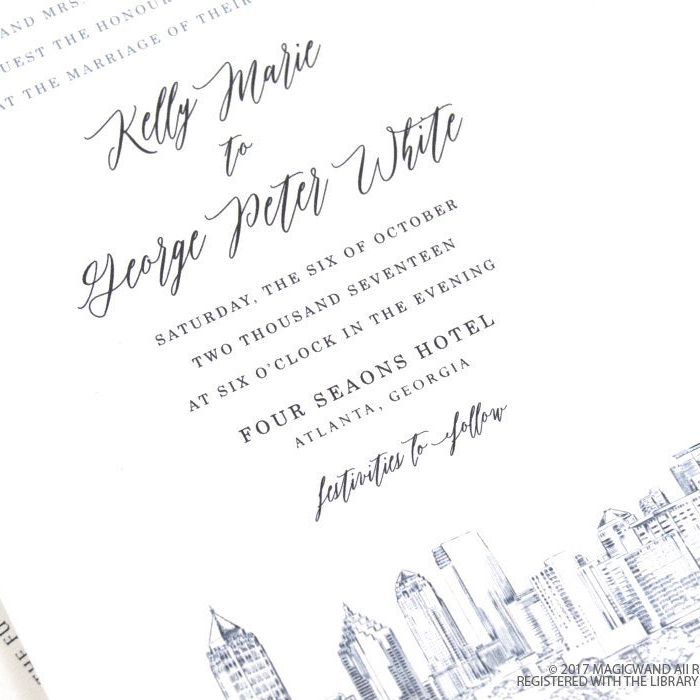 AND MRS.
UEST THE HONOUR
AT THE MARRIAGE OF THEIR
Kelly Marie
to
George Peter White
SATURDAY, THE SIX OF OCTOBER
TWO THOUSAND SEVENTEEN
AT SIX O'CLOCK IN THE EVENING
FOUR SEAONS HOTEL
ATLANTA, GEORGIA
festivities to follow
THE FO
© 2017 MAGICWAND All R
REGISTERED WITH THE LIBRARY